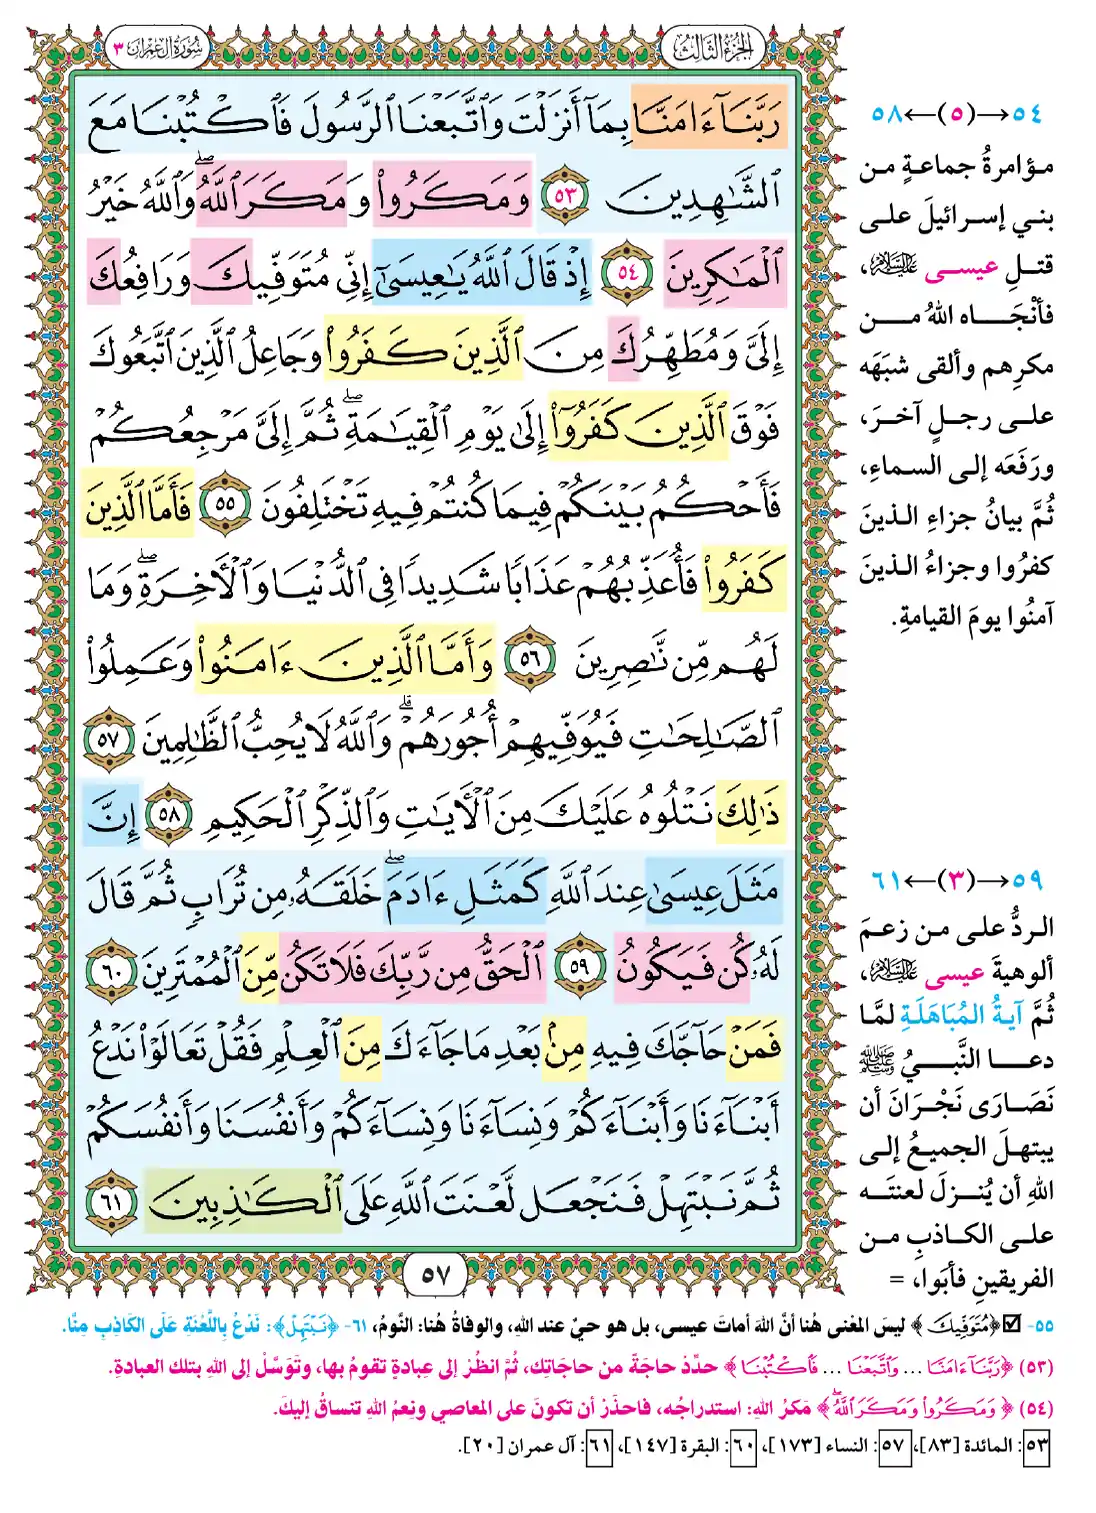 الجزء الثالث
سورة آل عمران ٣
رَبَّنَآ ءَامَنَّا بِمَآ أَنزَلْتَ وَٱتَّبَعْنَا ٱلرَّسُولَ فَٱكْتُبْنَا مَعَ
ٱلشَّٰهِدِينَ ٥٣ وَمَكَرُوا۟ وَمَكَرَ ٱللَّهُ ۖ وَٱللَّهُ خَيْرُ
ٱلْمَٰكِرِينَ ٥٤ إِذْ قَالَ ٱللَّهُ يَٰعِيسَىٰٓ إِنِّى مُتَوَفِّيكَ وَرَافِعُكَ
إِلَىَّ وَمُطَهِّرُكَ مِنَ ٱلَّذِينَ كَفَرُوا۟ وَجَاعِلُ ٱلَّذِينَ ٱتَّبَعُوكَ
فَوْقَ ٱلَّذِينَ كَفَرُوٓا۟ إِلَىٰ يَوْمِ ٱلْقِيَٰمَةِ ۖ ثُمَّ إِلَىَّ مَرْجِعُكُمْ
فَأَحْكُمُ بَيْنَكُمْ فِيمَا كُنتُمْ فِيهِ تَخْتَلِفُونَ ٥٥ فَأَمَّا ٱلَّذِينَ
كَفَرُوا۟ فَأُعَذِّبُهُمْ عَذَابًا شَدِيدًا فِى ٱلدُّنْيَا وَٱلْءَاخِرَةِ ۖ وَمَا
لَهُم مِّن نَّٰصِرِينَ ٥٦ وَأَمَّا ٱلَّذِينَ ءَامَنُوا۟ وَعَمِلُوا۟
ٱلصَّٰلِحَٰتِ فَيُوَفِّيهِمْ أُجُورَهُمْ ۗ وَٱللَّهُ لَا يُحِبُّ ٱلظَّٰلِمِينَ ٥٧
ذَٰلِكَ نَتْلُوهُ عَلَيْكَ مِنَ ٱلْءَايَٰتِ وَٱلذِّكْرِ ٱلْحَكِيمِ ٥٨ إِنَّ
مَثَلَ عِيسَىٰ عِندَ ٱللَّهِ كَمَثَلِ ءَادَمَ ۖ خَلَقَهُۥ مِن تُرَابٍ ثُمَّ قَالَ
لَهُۥ كُن فَيَكُونُ ٥٩ ٱلْحَقُّ مِن رَّبِّكَ فَلَا تَكُن مِّنَ ٱلْمُمْتَرِينَ ٦٠
فَمَنْ حَآجَّكَ فِيهِ مِنۢ بَعْدِ مَا جَآءَكَ مِنَ ٱلْعِلْمِ فَقُلْ تَعَالَوْا۟ نَدْعُ
أَبْنَآءَنَا وَأَبْنَآءَكُمْ وَنِسَآءَنَا وَنِسَآءَكُمْ وَأَنفُسَنَا وَأَنفُسَكُمْ
ثُمَّ نَبْتَهِلْ فَنَجْعَل لَّعْنَتَ ٱللَّهِ عَلَى ٱلْكَٰذِبِينَ ٦١
٥٧
٥٤→(٥)←٥٨
مؤامرةُ جماعةٍ من
بني إسرائيلَ على
قتلِ عيسى عليه السلام،
فأنْجَاه اللهُ من
مكرِهم وألقى شبَهَه
على رجلٍ آخرَ،
ورَفَعَه إلى السماءِ،
ثُمَّ بيانُ جزاءِ الذينَ
كفرُوا وجزاءُ الذينَ
آمنُوا يومَ القيامةِ.
٥٩→(٣)←٦١
الردُّ على من زعمَ
ألوهيةَ عيسى عليه السلام،
ثُمَّ آيةُ المُبَاهَلَةِ لمَّا
دعا النَّبيُ ﷺ
نَصَارَى نَجْرَانَ أن
يبتهلَ الجميعُ إلى
اللهِ أن يُنزلَ لعنتَه
على الكاذبِ من
الفريقينِ فأبَوا، =
٥٥- ☑ ﴿مُتَوَفِّيكَ﴾ ليسَ المعْنى هُنا أنَّ اللهَ أماتَ عيسى، بل هو حيٌ عند اللهِ، والوفاةُ هُنا: النَّومُ، ٦١- ﴿نَبْتَهِلْ﴾: نَدْعُ بِاللَّعْنَةِ عَلَى الكَاذِبِ مِنَّا.
(٥٣) ﴿رَبَّنَآ ءَامَنَّا ... وَٱتَّبَعْنَا ... فَٱكْتُبْنَا﴾ حدِّدْ حاجَةً من حاجَاتِك، ثُمَّ انظُرْ إلى عِبادةٍ تقومُ بها، وتَوَسَّلْ إلى اللهِ بتلك العبادةِ.
(٥٤) ﴿وَمَكَرُوا۟ وَمَكَرَ ٱللَّهُ ۖ﴾ مَكرُ اللهِ: استدراجُه، فاحذَرْ أن تكونَ على المعاصي ونِعمُ اللهِ تنساقُ إليكَ.
٥٣: المائدة [٨٣]، ٥٧: النساء [١٧٣]، ٦٠: البقرة [١٤٧]، ٦١: آل عمران [٢٠].